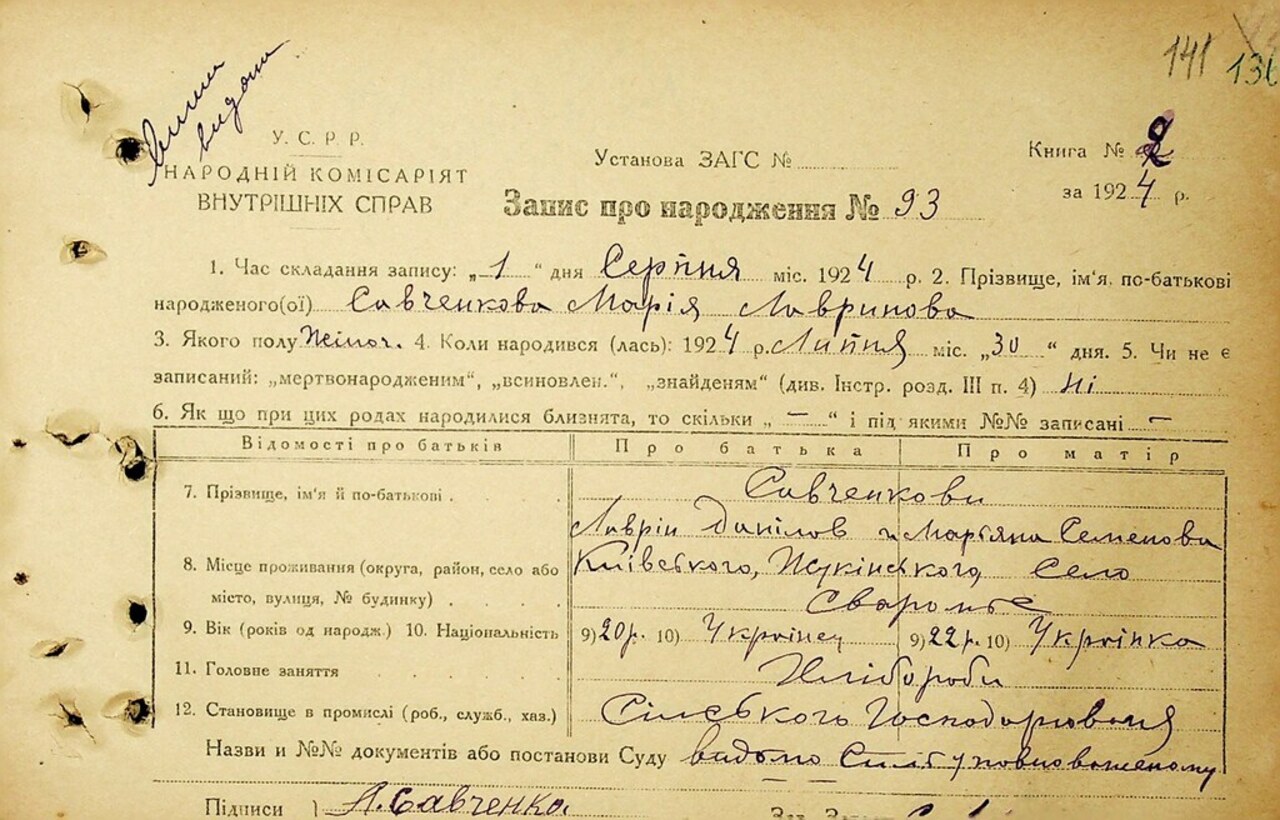 141 136
Виписи
видани
У. С. Р. Р.
НАРОДНІЙ КОМІСАРІЯТ
ВНУТРІШНІХ СПРАВ
Установа ЗАГС №
Книга № 2
за 1924 р.
Запис про народження № 93
1. Час складання запису: „1“ дня Серпня міс. 1924 р. 2. Прізвище, ім'я, по-батькові
народженого(ої) Савченкова Марія Лавринова
3. Якого полу Жіноч. 4. Коли народився (лась): 1924 р. Липня міс. „30“ дня. 5. Чи не є
записаний: „мертвонародженим“, „всиновлен.“, „знайденям“ (див. Інстр. розд. III п. 4) Ні
6. Як що при цих родах народилися близнята, то скільки „—“ і під якими №№ записані —
Відомості про батьків Про батька Про матір
7. Прізвище, ім'я й по-батькові Савченкови
Лаврін Данілов и Мар'яна Семенова
8. Місце проживання (округа, район, село або Київського, Жукінського, Село
місто, вулиця, № будинку) Сваромье
9. Вік (років од народж.) 10. Національність 9) 20 р. 10) Українец 9) 22 р. 10) Українка
11. Головне заняття Хлібороби
12. Становище в промислі (роб., служб., хаз.) Сільського Господарювання
Назви и №№ документів або постанови Суду видомо Сил уповноваженому
Підписи } Л. Савченко